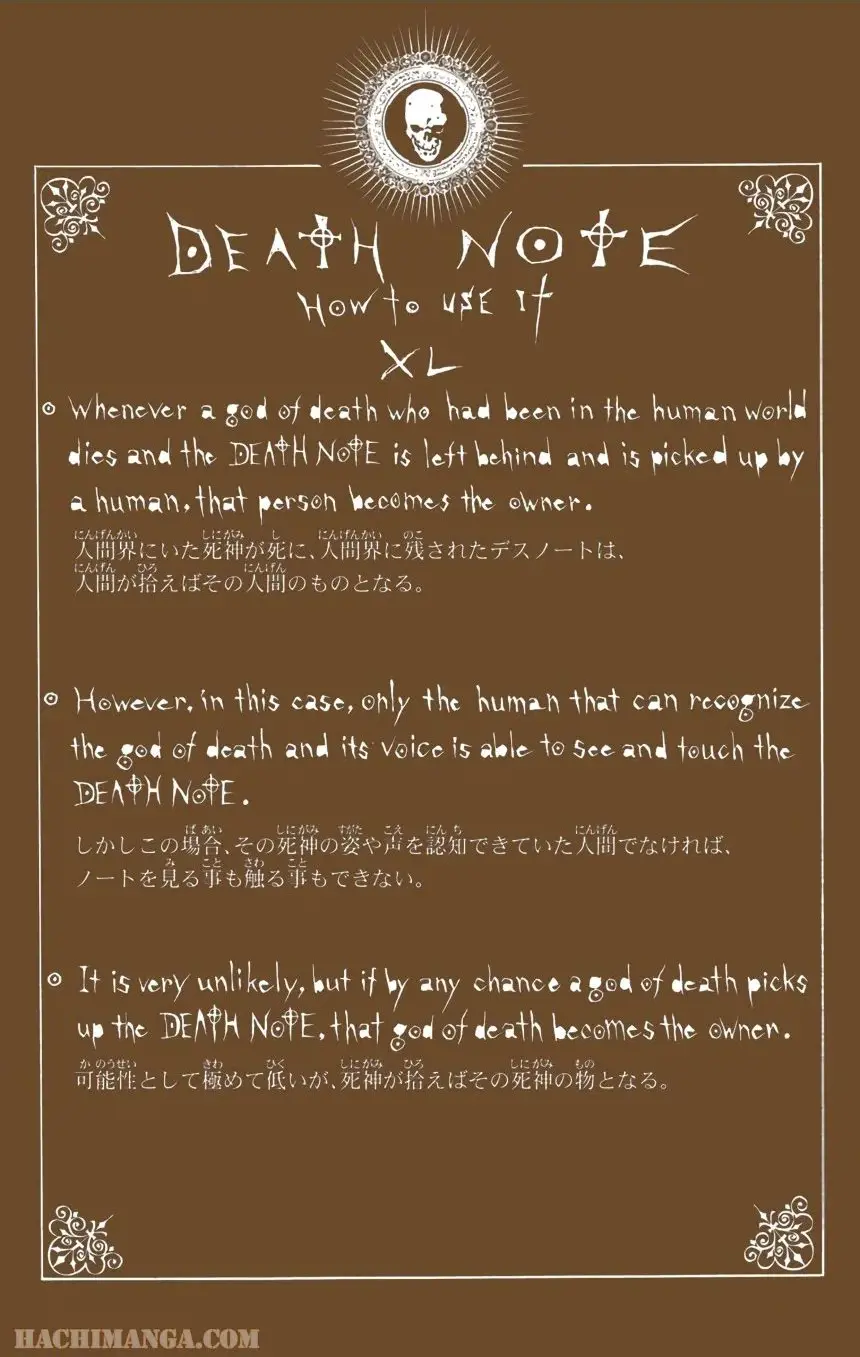 DEATH NOTE
How to use it
XL
Whenever a god of death who had been in the human world
dies and the DEATH NOTE is left behind and is picked up by
a human, that person becomes the owner.
人間界にいた死神が死に、人間界に残されたデスノートは、
人間が拾えばその人間のものとなる。
However, in this case, only the human that can recognize
the god of death and its voice is able to see and touch the
DEATH NOTE.
しかしこの場合、その死神の姿や声を認知できていた人間でなければ、
ノートを見る事も触る事もできない。
It is very unlikely, but if by any chance a god of death picks
up the DEATH NOTE, that god of death becomes the owner.
可能性として極めて低いが、死神が拾えばその死神の物となる。
HACHIMANGA.COM